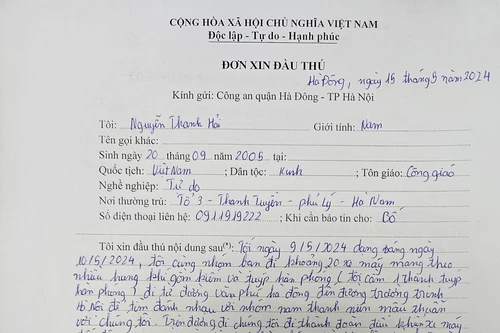 CỘNG HÒA XÃ HỘI CHỦ NGHĨA VIỆT NAM
Độc lập - Tự do - Hạnh phúc
ĐƠN XIN ĐẦU THÚ
Hà Đông, ngày 15 tháng 5 năm 2024
Kính gửi: Công an quận Hà Đông - TP Hà Nội
Tôi: Nguyễn Thanh Hải Giới tính: Nam
Tên gọi khác:
Sinh ngày 20 tháng 09 năm 2005 tại:
Quốc tịch: Việt Nam; Dân tộc: Kinh; Tôn giáo: Công giáo
Nghề nghiệp: Tự do
Nơi thường trú: Tổ 3 - Thanh Tuyền - phủ Lý - Hà Nam
Số điện thoại liên hệ: 0911919222; Khi cần báo tin cho: Bố
Tôi xin đầu thú nội dung sau(*): Tối ngày 9/5/2024 dạng sáng ngày
10/5/2024, tôi cùng nhóm bạn đi khoảng 20 xe máy mang theo
nhiều hung khí gồm kiếm và tuýp hàn phóng (tôi cầm 1 thanh tuýp
hàn phóng) đi từ đường văn phú hà đông đến đường trương trinh
Hà Nội để tìm đánh nhau với nhóm nam thanh niên mâu thuẫn
với chúng tôi. Trên đường đi chúng tôi đi thành đoàn